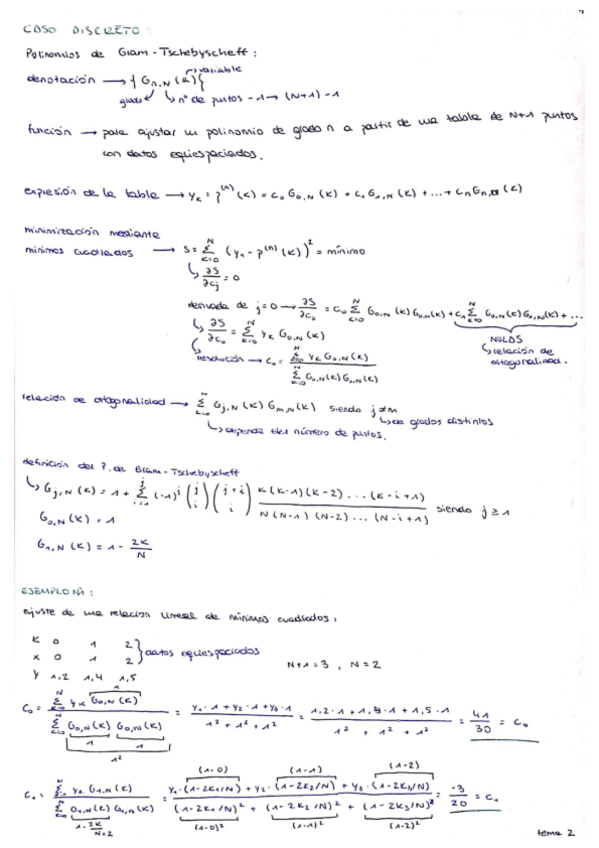 CASO DISCRETO:
Polinomios de Gram-Tschebyscheff:
denotación → { G_{n,N} (k) } variable
grado nº de puntos -1 → (N+1) - 1
función → para ajustar un polinomio de grado n a partir de una tabla de N+1 puntos
con datos equiespaciados.
expresión de la tabla → y_k = p^{(n)} (k) = c_0 G_{0,N} (k) + c_1 G_{1,N} (k) + ... + c_n G_{n,N} (k)
minimización mediante
mínimos cuadrados → S = Σ_{k=0}^{N} (y_k - p^{(n)} (k))² = mínimo
∂S/∂c_j = 0
derivada de j=0 → ∂S/∂c_0 = c_0 Σ_{k=0}^{N} G_{0,N} (k) G_{0,N} (k) + c_1 Σ_{k=0}^{N} G_{0,N} (k) G_{1,N} (k) + ...
∂S/∂c_0 = Σ_{k=0}^{N} y_k G_{0,N} (k)
NULOS
relación de
ortogonalidad.
resolución → c_0 = Σ_{k=0}^{N} y_k G_{0,N} (k) / Σ_{k=0}^{N} G_{0,N} (k) G_{0,N} (k)
relación de ortogonalidad → Σ_{k=0}^{N} G_{j,N} (k) G_{m,N} (k) siendo j≠m
de grados distintos
depende del número de puntos.
definición del P. de Gram-Tschebyscheff
G_{j,N} (k) = 1 + Σ_{i=1}^{j} (-1)^i (j i) (j+i i) k(k-1)(k-2)...(k-i+1) / N(N-1)(N-2)...(N-i+1) siendo j ≥ 1
G_{0,N} (k) = 1
G_{1,N} (k) = 1 - 2k/N
EJEMPLO Nº1:
ajuste de una relación lineal de mínimos cuadrados:
k 0 1 2
x 0 1 2 } datos equiespaciados
y 1,2 1,4 1,5
N+1 = 3 , N = 2
c_0 = Σ_{k=0}^{N} y_k G_{0,N} (k) / Σ_{k=0}^{N} G_{0,N} (k) G_{0,N} (k) = y_1·1 + y_2·1 + y_3·1 / 1² + 1² + 1² = 1,2·1 + 1,4·1 + 1,5·1 / 1² + 1² + 1² = 41/30 = c_0
1 1
1²
(1-0) (1-1) (1-2)
c_1 = Σ_{k=0}^{N} y_k G_{1,N} (k) / Σ_{k=0}^{N} G_{1,N} (k) G_{1,N} (k) = y_1·(1-2k_1/N) + y_2·(1-2k_2/N) + y_3·(1-2k_3/N) / (1-2k_1/N)² + (1-2k_2/N)² + (1-2k_3/N)² = -3/20 = c_1
1 - 2k/N N=2 (1-0)² (1-1)² (1-2)²
tema 2